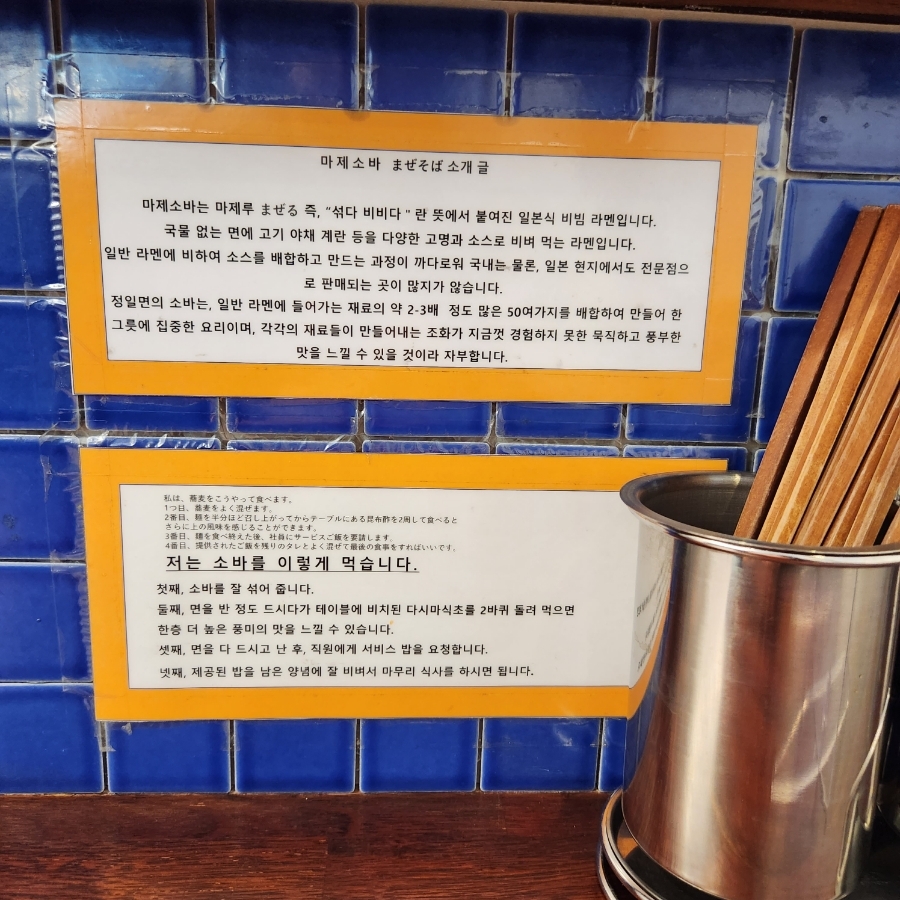 마제소바 まぜそば 소개 글
마제소바는 마제루 まぜる 즉, "섞다 비비다" 란 뜻에서 붙여진 일본식 비빔 라멘입니다.
국물 없는 면에 고기 야채 계란 등을 다양한 고명과 소스로 비벼 먹는 라멘입니다.
일반 라멘에 비하여 소스를 배합하고 만드는 과정이 까다로워 국내는 물론, 일본 현지에서도 전문점으
로 판매되는 곳이 많지가 않습니다.
정일면의 소바는, 일반 라멘에 들어가는 재료의 약 2-3배 정도 많은 50여가지를 배합하여 만들어 한
그릇에 집중한 요리이며, 각각의 재료들이 만들어내는 조화가 지금껏 경험하지 못한 묵직하고 풍부한
맛을 느낄 수 있을 것이라 자부합니다.
私は、蕎麦をこうやって食べます。
1つ目、蕎麦をよく混ぜます。
2番目、麺を半分ほど召し上がってからテーブルにある昆布酢を2周して食べると
さらに上の風味を感じることができます。
3番目、麺を食べ終えた後、社員にサービスご飯を要請します。
4番目、提供されたご飯を残りのタレとよく混ぜて最後の食事をすればいいです。
저는 소바를 이렇게 먹습니다.
첫째, 소바를 잘 섞어 줍니다.
둘째, 면을 반 정도 드시다가 테이블에 비치된 다시마식초를 2바퀴 돌려 먹으면
한층 더 높은 풍미의 맛을 느낄 수 있습니다.
셋째, 면을 다 드시고 난 후, 직원에게 서비스 밥을 요청합니다.
넷째, 제공된 밥을 남은 양념에 잘 비벼서 마무리 식사를 하시면 됩니다.